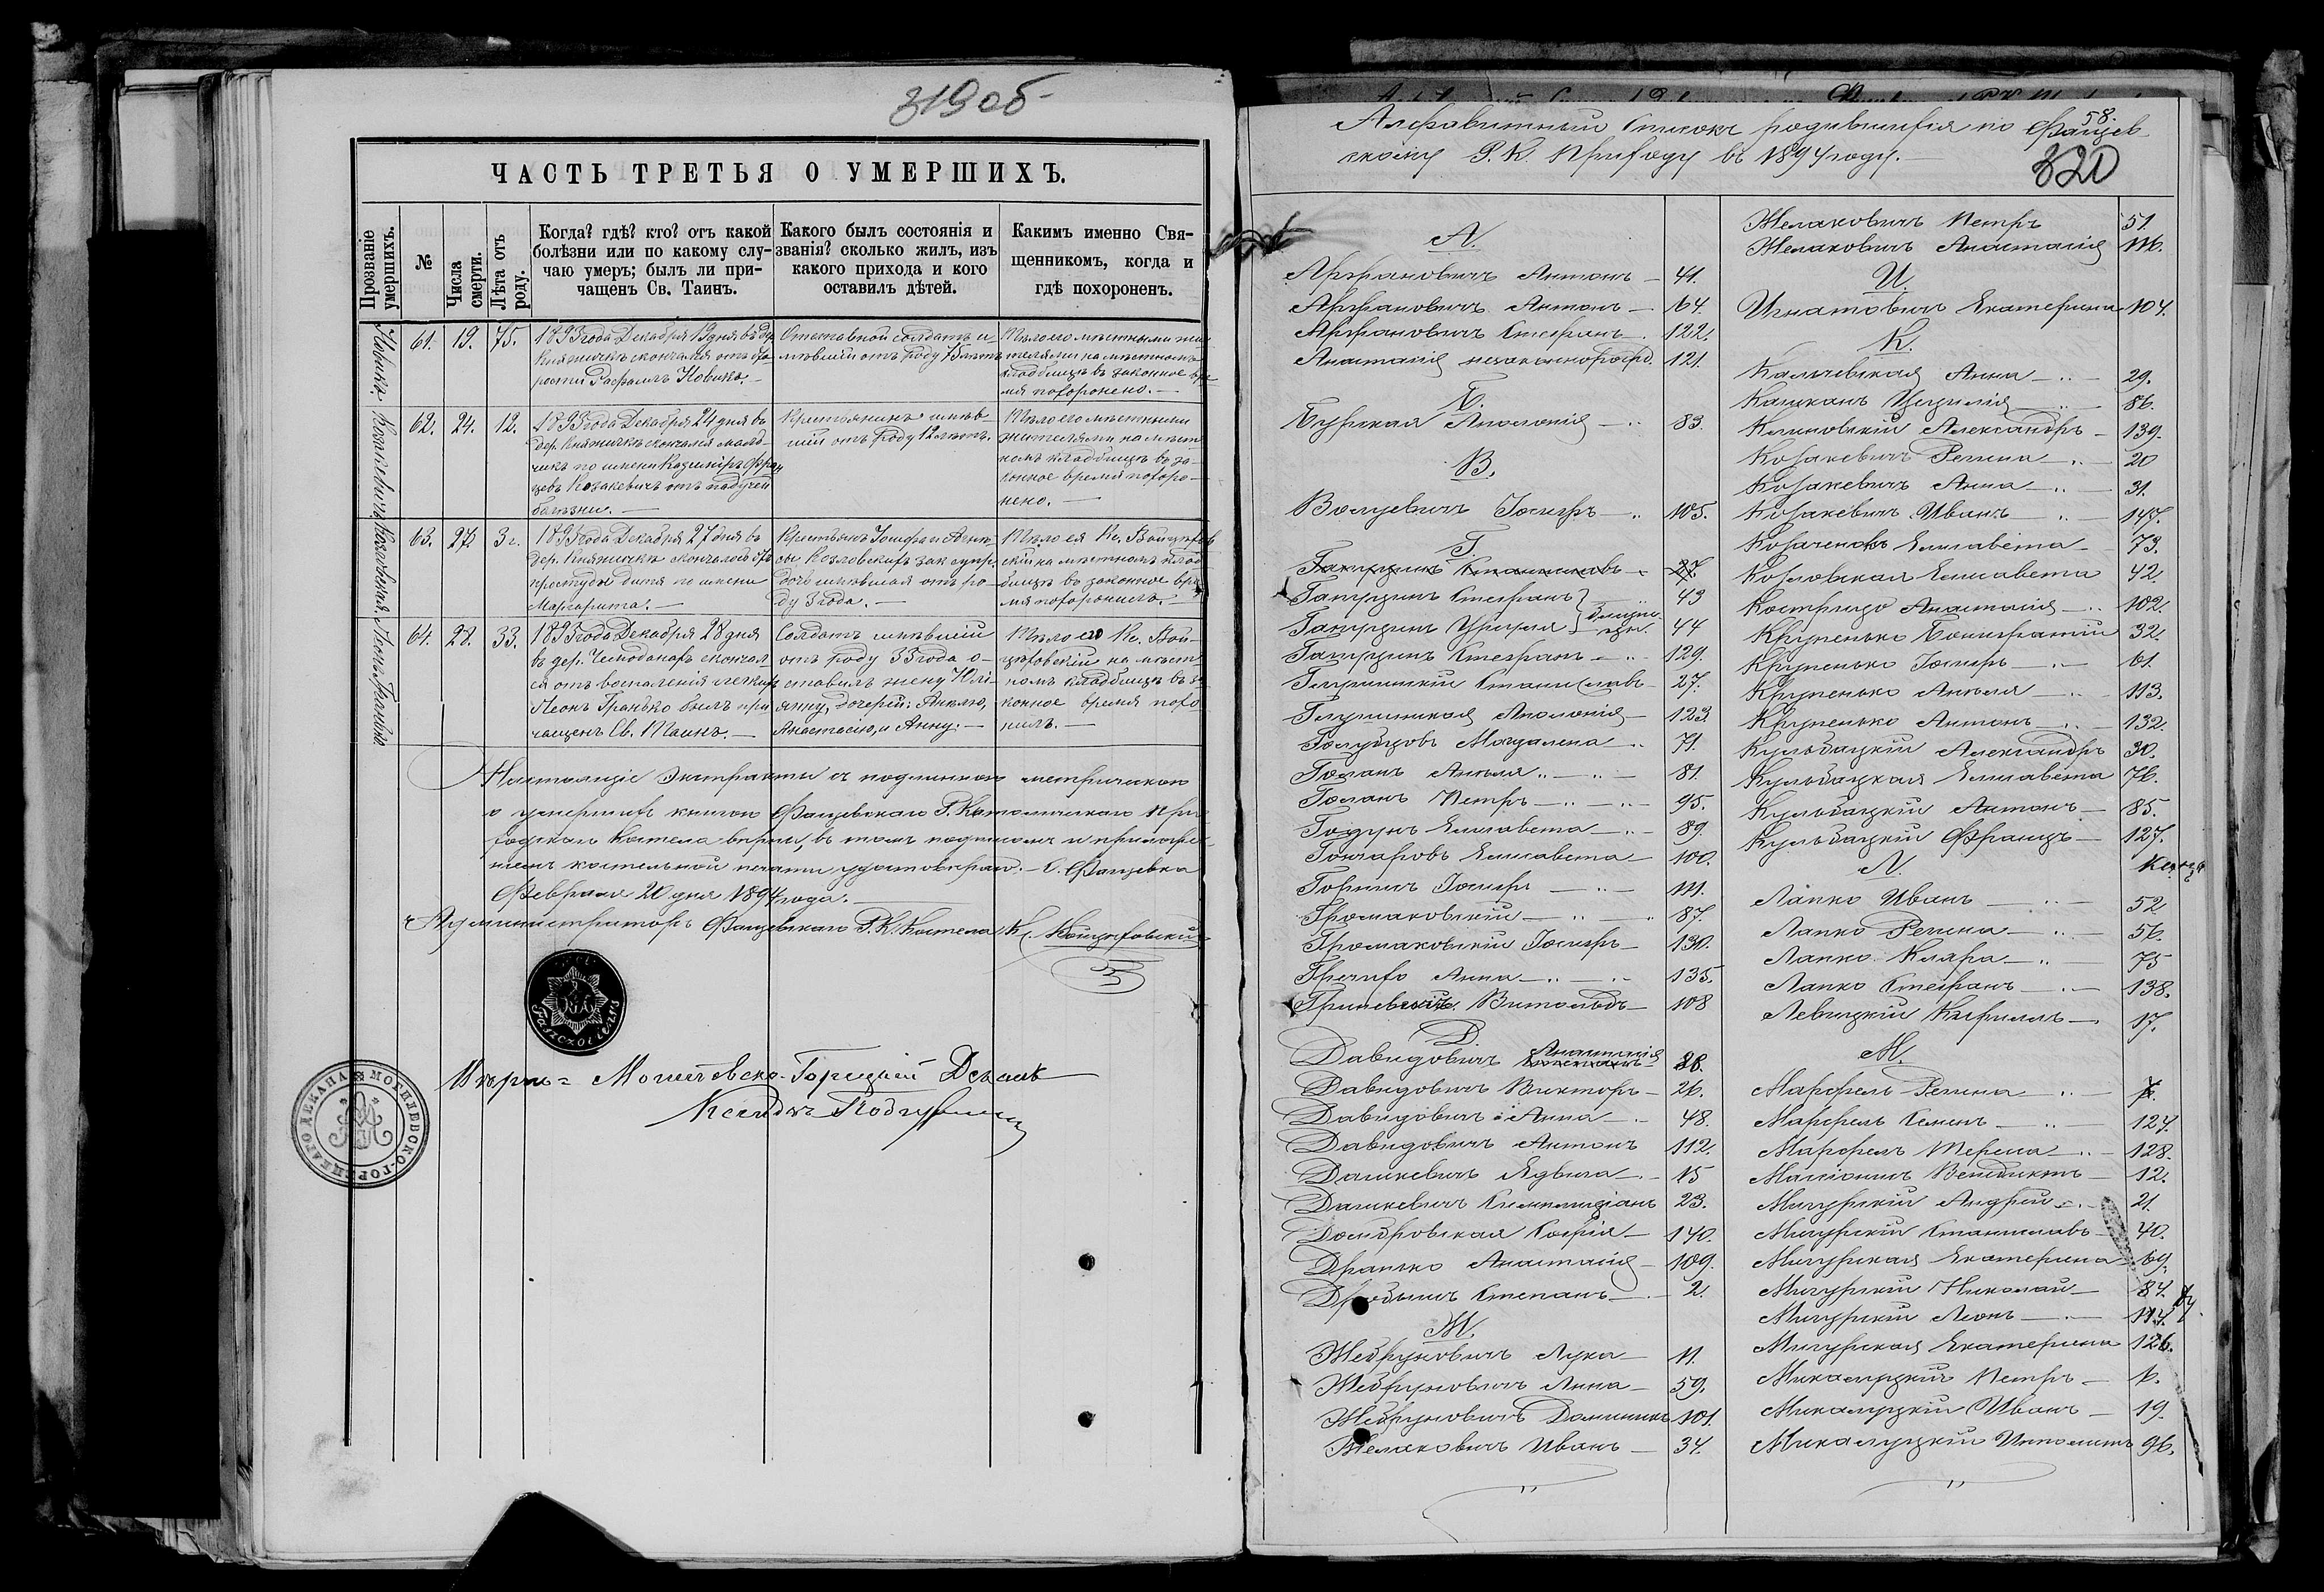 319 об
ЧАСТЬ ТРЕТЬЯ О УМЕРШИХЪ.
Прозваніе умершихъ.
№
Числа смерти.
Лѣта отъ роду.
Когда? гдѣ? кто? отъ какой
болѣзни или по какому слу-
чаю умеръ; былъ ли при-
чащенъ Св. Таинъ.
Какого былъ состоянія и
званія? сколько жилъ, изъ
какого прихода и кого
оставилъ дѣтей.
Какимъ именно Свя-
щенникомъ, когда и
гдѣ похороненъ.
Новикъ.
61. 19. 75.
1893 года Декабря 19 дня въ дер.
Княжичкъ скончался отъ ста
рости Рафаилъ Новикъ.—
Отставной солдатъ и
мѣвшій отъ роду 75 лѣтъ
Тѣло его мѣстными жи
телями на мѣстномъ
кладбищѣ въ законное вре
мя похоронено.—
Козакевичъ.
62. 24. 12.
1893 года Декабря 24 дня въ
дер. Княжичкъ скончался маль-
чикъ по имени Казимиръ Фран
цевъ Козакевичъ отъ падучей
болѣзни.—
Крестьянинъ имѣв-
шій отъ роду 12 лѣтъ.
Тѣло его мѣстными
жителями на мѣст
номъ кладбищѣ въ за-
конное время похоро-
нено.—
Козловская.
63. 27. 3 г.
1893 года Декабря 27 дня въ
дер. Княжичкъ скончалось отъ
простуды дитя по имени
Маргарита.—
Крестьянъ Іосифа и Агне
сы Козловскихъ зак. супр.
дочь имѣвшая отъ ро-
ду 3 года.—
Тѣло ея Кс. Войцѣхов
скій на мѣстномъ клад-
бищѣ въ законное вре
мя похоронилъ.—
Леонъ Гранько.
64. 28. 33.
1893 года Декабря 28 дня
въ дер. Чемоданахъ скончал-
ся отъ воспаленія легкихъ
Леонъ Гранько былъ при
чащенъ Св. Таинъ.—
Солдатъ имѣвшій
отъ роду 33 года о-
ставилъ жену Юлі-
анну, дочерей: Анѣлю,
Анастасію, и Анну.—
Тѣло его Кс. Вой-
цѣховскій на мѣст
номъ кладбищѣ въ за
конное время похо
нилъ.—
Настоящіе Экстракты съ подлинною метрическою
о умершихъ книгою Фащевскаго Р. Католическаго При
ходскаго Костела вѣрны, въ томъ подписомъ и приложе-
ніемъ костельной печати удостовѣряю.— С. Фащевка
Февраля 20 дня 1894 года.—
Администраторъ Фащевскаго Р. К. Костела Кс. Войцѣховскій
Вѣрно= Могилевско-Горецкій Деканъ
Ксендзъ
МОГИЛЕВСКО-ГОРЕЦКАГО ДЕКАНА
58.
Алфавитный списокъ родившихся по Фащев
скому Р. К. Приходу въ 1894 году.—
320
А.
Арфановичъ Антонъ — 41.
Арфановичъ Антонъ — 64.
Арфановичъ Стефанъ . 122.
Анастасія незаконнорожд. 121.
Б.
Бурская Аполонія — 83.
В.
Волцевичъ Іосифъ — 105.
Г.
Гапуцинъ Станиславъ — 27.
Гапуцинъ Стефанъ } 43
Гапуцинъ Урсуля } близне-цы. 44
Гапуцинъ Стефанъ — 129.
Глушинскій Станиславъ 27.
Глушинская Аполонія — 123.
Голубцовъ Магдалена .. 71.
Голанъ Анѣля .. — 81.
Голанъ Петръ — .. — 95.
Годунъ Елисавета — .. 89.
Гончаровъ Елисавета 100.
Горничъ Іосифъ — .. — 111.
Громаковскій — .. — 87.
Громаковскій Іосифъ — 130.
Гречихо Анна — .. — 135.
Гриневичъ Витольдъ — 108
Д.
Давидовичъ Анастасія 28.
Давидовичъ Викторъ — 26.
Давидовичъ Анна — . 48.
Давидовичъ Антонъ 112.
Дашкевичъ Ядвига — . — 15
Дашкевичъ 23.
Домбровская Софія — 140.
Дранько Анастасія — 109.
Дробышъ Степанъ — . — 2.
Ж.
Жебруновичъ Лука — 11.
Жебруновичъ Анна — 59.
Жебруновичъ Доминикъ 101.
Желаковичъ Иванъ — 34.
Желаковичъ Петръ 51.
Желаковичъ Анастасія 116.
И.
Игнатовичъ Екатерина 104.
К.
Кальчевская Анна — .. — 29.
Кашканъ Цецилія — 86.
Клиновскій Александръ — 139.
Козакевичъ Регина — .. 20
Козакевичъ Анна — .. — 31.
Козакевичъ Иванъ — .. — 147.
Козаченокъ Елисавета — 73.
Козловская Елисавета 42.
Костригдо Анастасія — .. 102.
Крупенько Бонифатій 32.
Крупенько Іосифъ — .. — 61.
Крупенько Анѣля — .. — 113.
Крупенько Антонъ — .. — 132.
Кульбацкій Александръ 30.
Кульбацкая Елисавета 76.
Кульбацкій Антонъ — 85.
Кульбацкій Францъ — 127.
Л.
Лапко Иванъ — .. — 52
Лапко Регина — .. — 56.
Лапко Кляра — .. 75
Лапко Стефанъ — .. — 138.
Левицкій Кириллъ — . 17.
М.
Марфель Регина — .. —
Марфель Семенъ — .. 124.
Марфель Тереса .. — 128.
Масіонишъ Венедиктъ — 12.
Мигурскій Андрей .. — 21.
Мигурскій Станиславъ — 40.
Мигурская Екатерина — 69.
Мигурскій Николай — 84.
Мигурскій Леонъ — . — 114.
Мигурская Екатерина 126.
Микалуцкій Петръ — 6.
Микалуцкій Иванъ — 19.
Микалуцкій Ипполитъ 96.